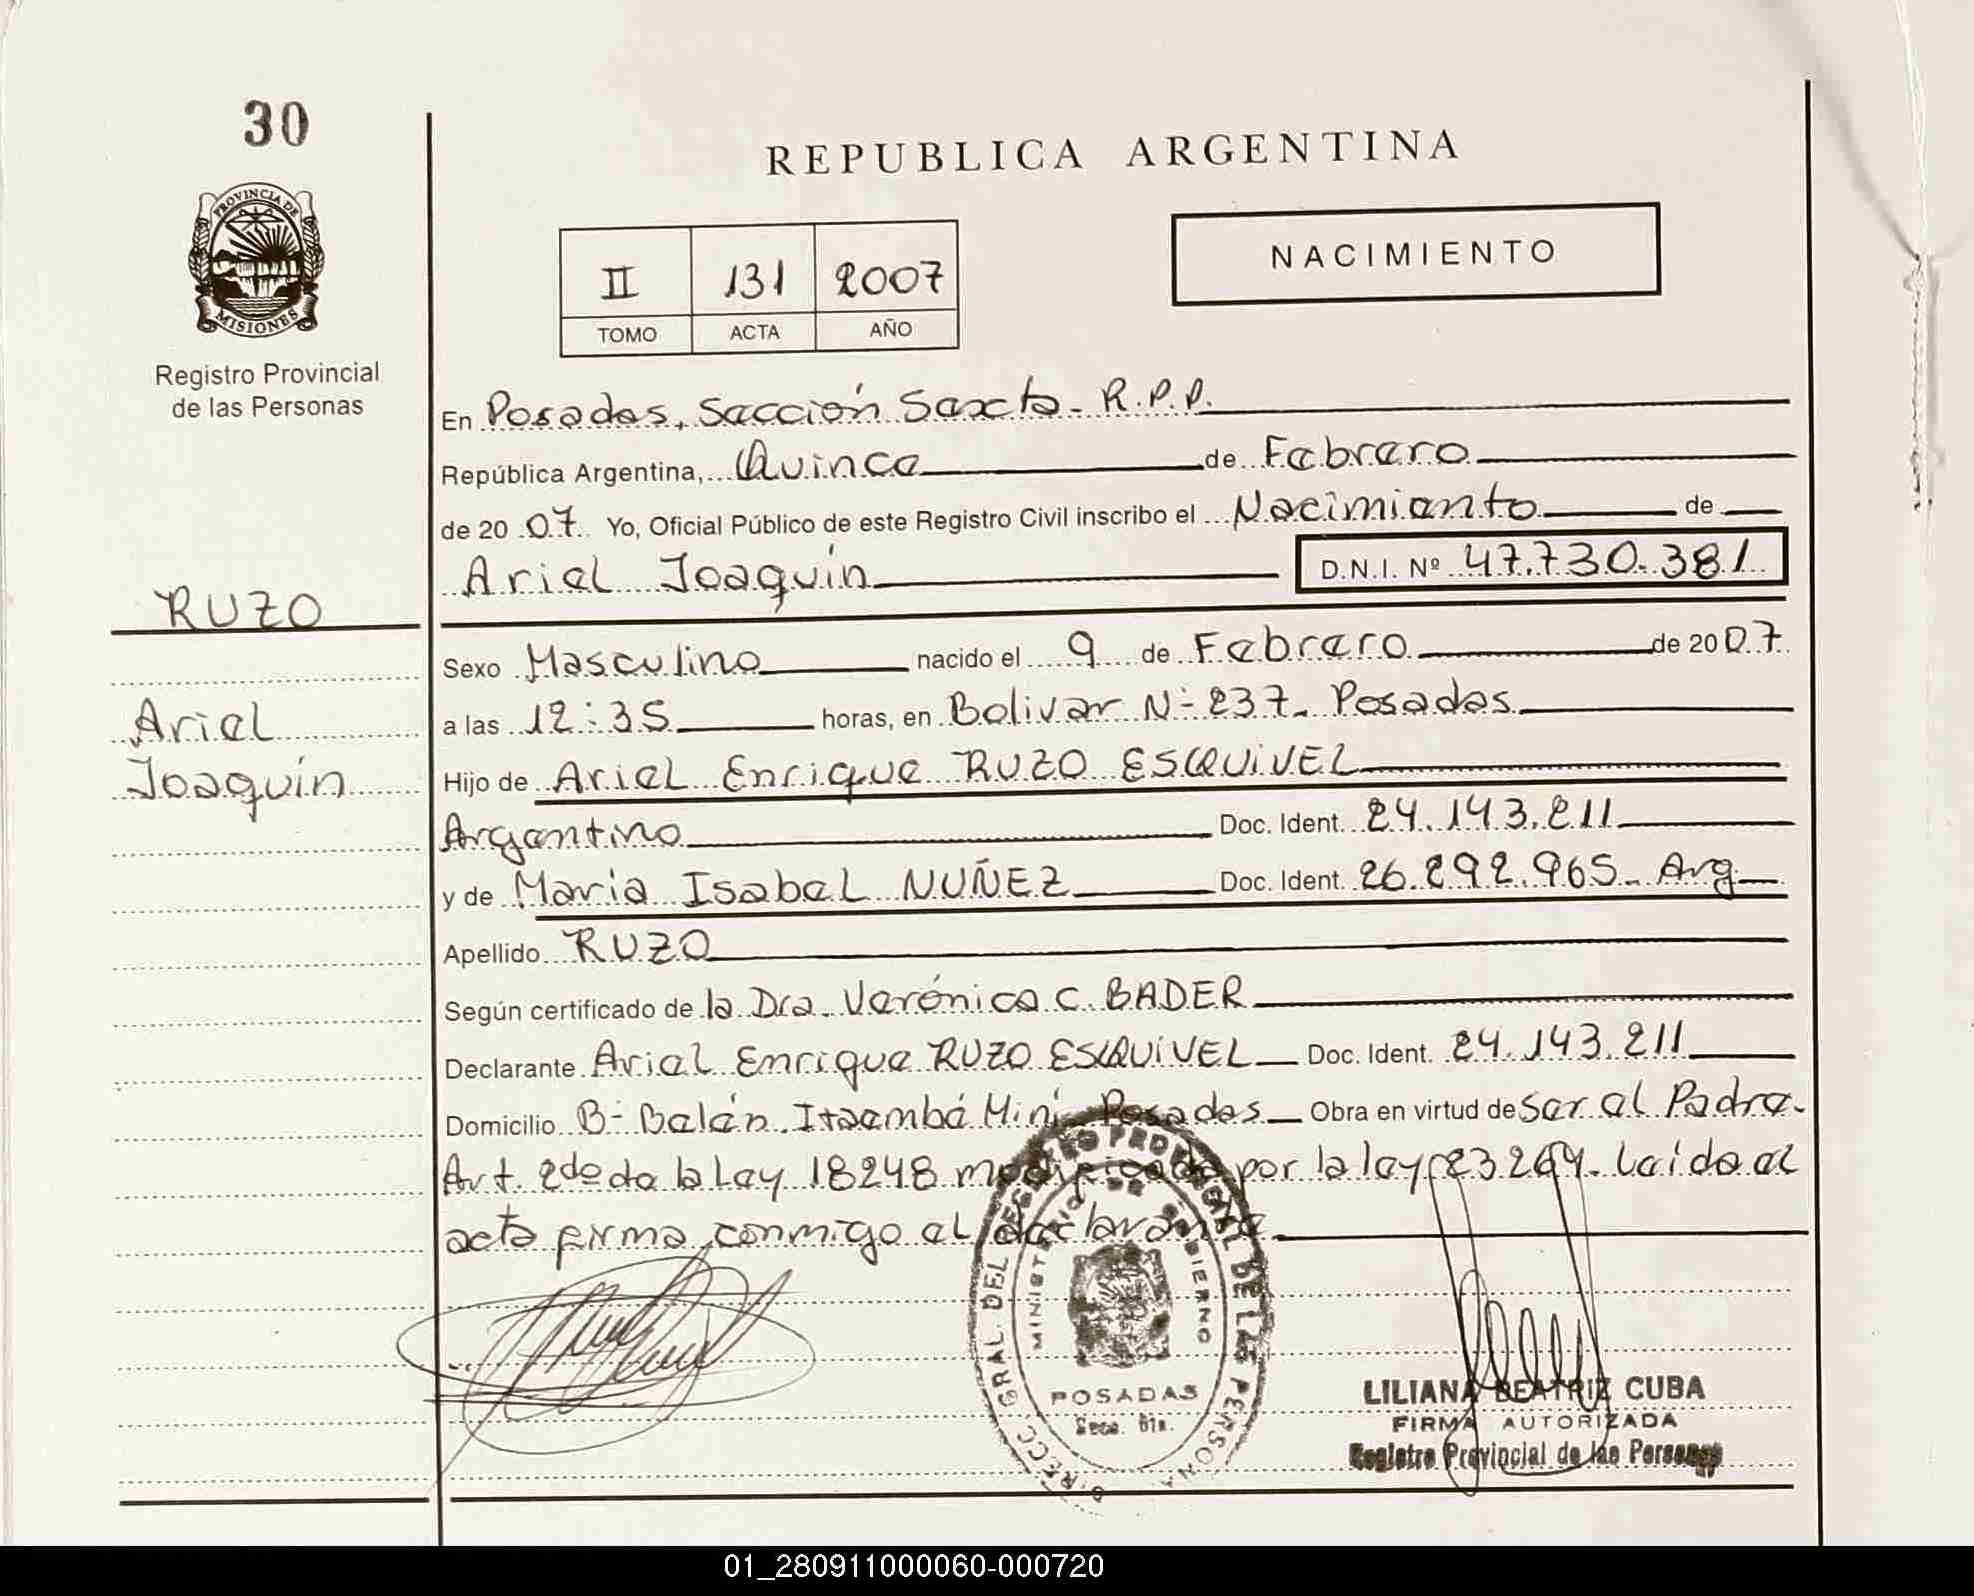 30
REPUBLICA ARGENTINA
PROVINCIA DE
MISIONES
Registro Provincial
de las Personas
II 131 2007
TOMO ACTA AÑO
NACIMIENTO
En Posadas, Sección Sexta - R.P.P.
República Argentina, Quince de Febrero
de 2007. Yo, Oficial Público de este Registro Civil inscribo el Nacimiento de
Ariel Joaquín D.N.I. Nº 47.730.381
RUZO
Ariel
Joaquín
Sexo Masculino nacido el 9 de Febrero de 2007
a las 12:35 horas, en Bolivar Nº 237. Posadas
Hijo de Ariel Enrique RUZO ESQUIVEL
Argentino Doc. Ident. 24.143.211
y de María Isabel NUÑEZ Doc. Ident. 26.292.965 - Arg
Apellido RUZO
Según certificado de la Dra. Verónica C. BADER
Declarante Ariel Enrique RUZO ESQUIVEL Doc. Ident. 24.143.211
Domicilio Bº Belén, Itaembé Miní Posadas Obra en virtud de ser el Padre.
Art. 2do de la Ley 18248 modificada por la ley 23264. Leída el
acta firma conmigo el declarante
DIRECC. GRAL. DEL REGISTRO PROVINCIAL DE LAS PERSONAS
MINISTERIO DE GOBIERNO
POSADAS
Secc. 6ta.
LILIANA BEATRIZ CUBA
FIRMA AUTORIZADA
Registro Provincial de las Personas
01_280911000060-000720